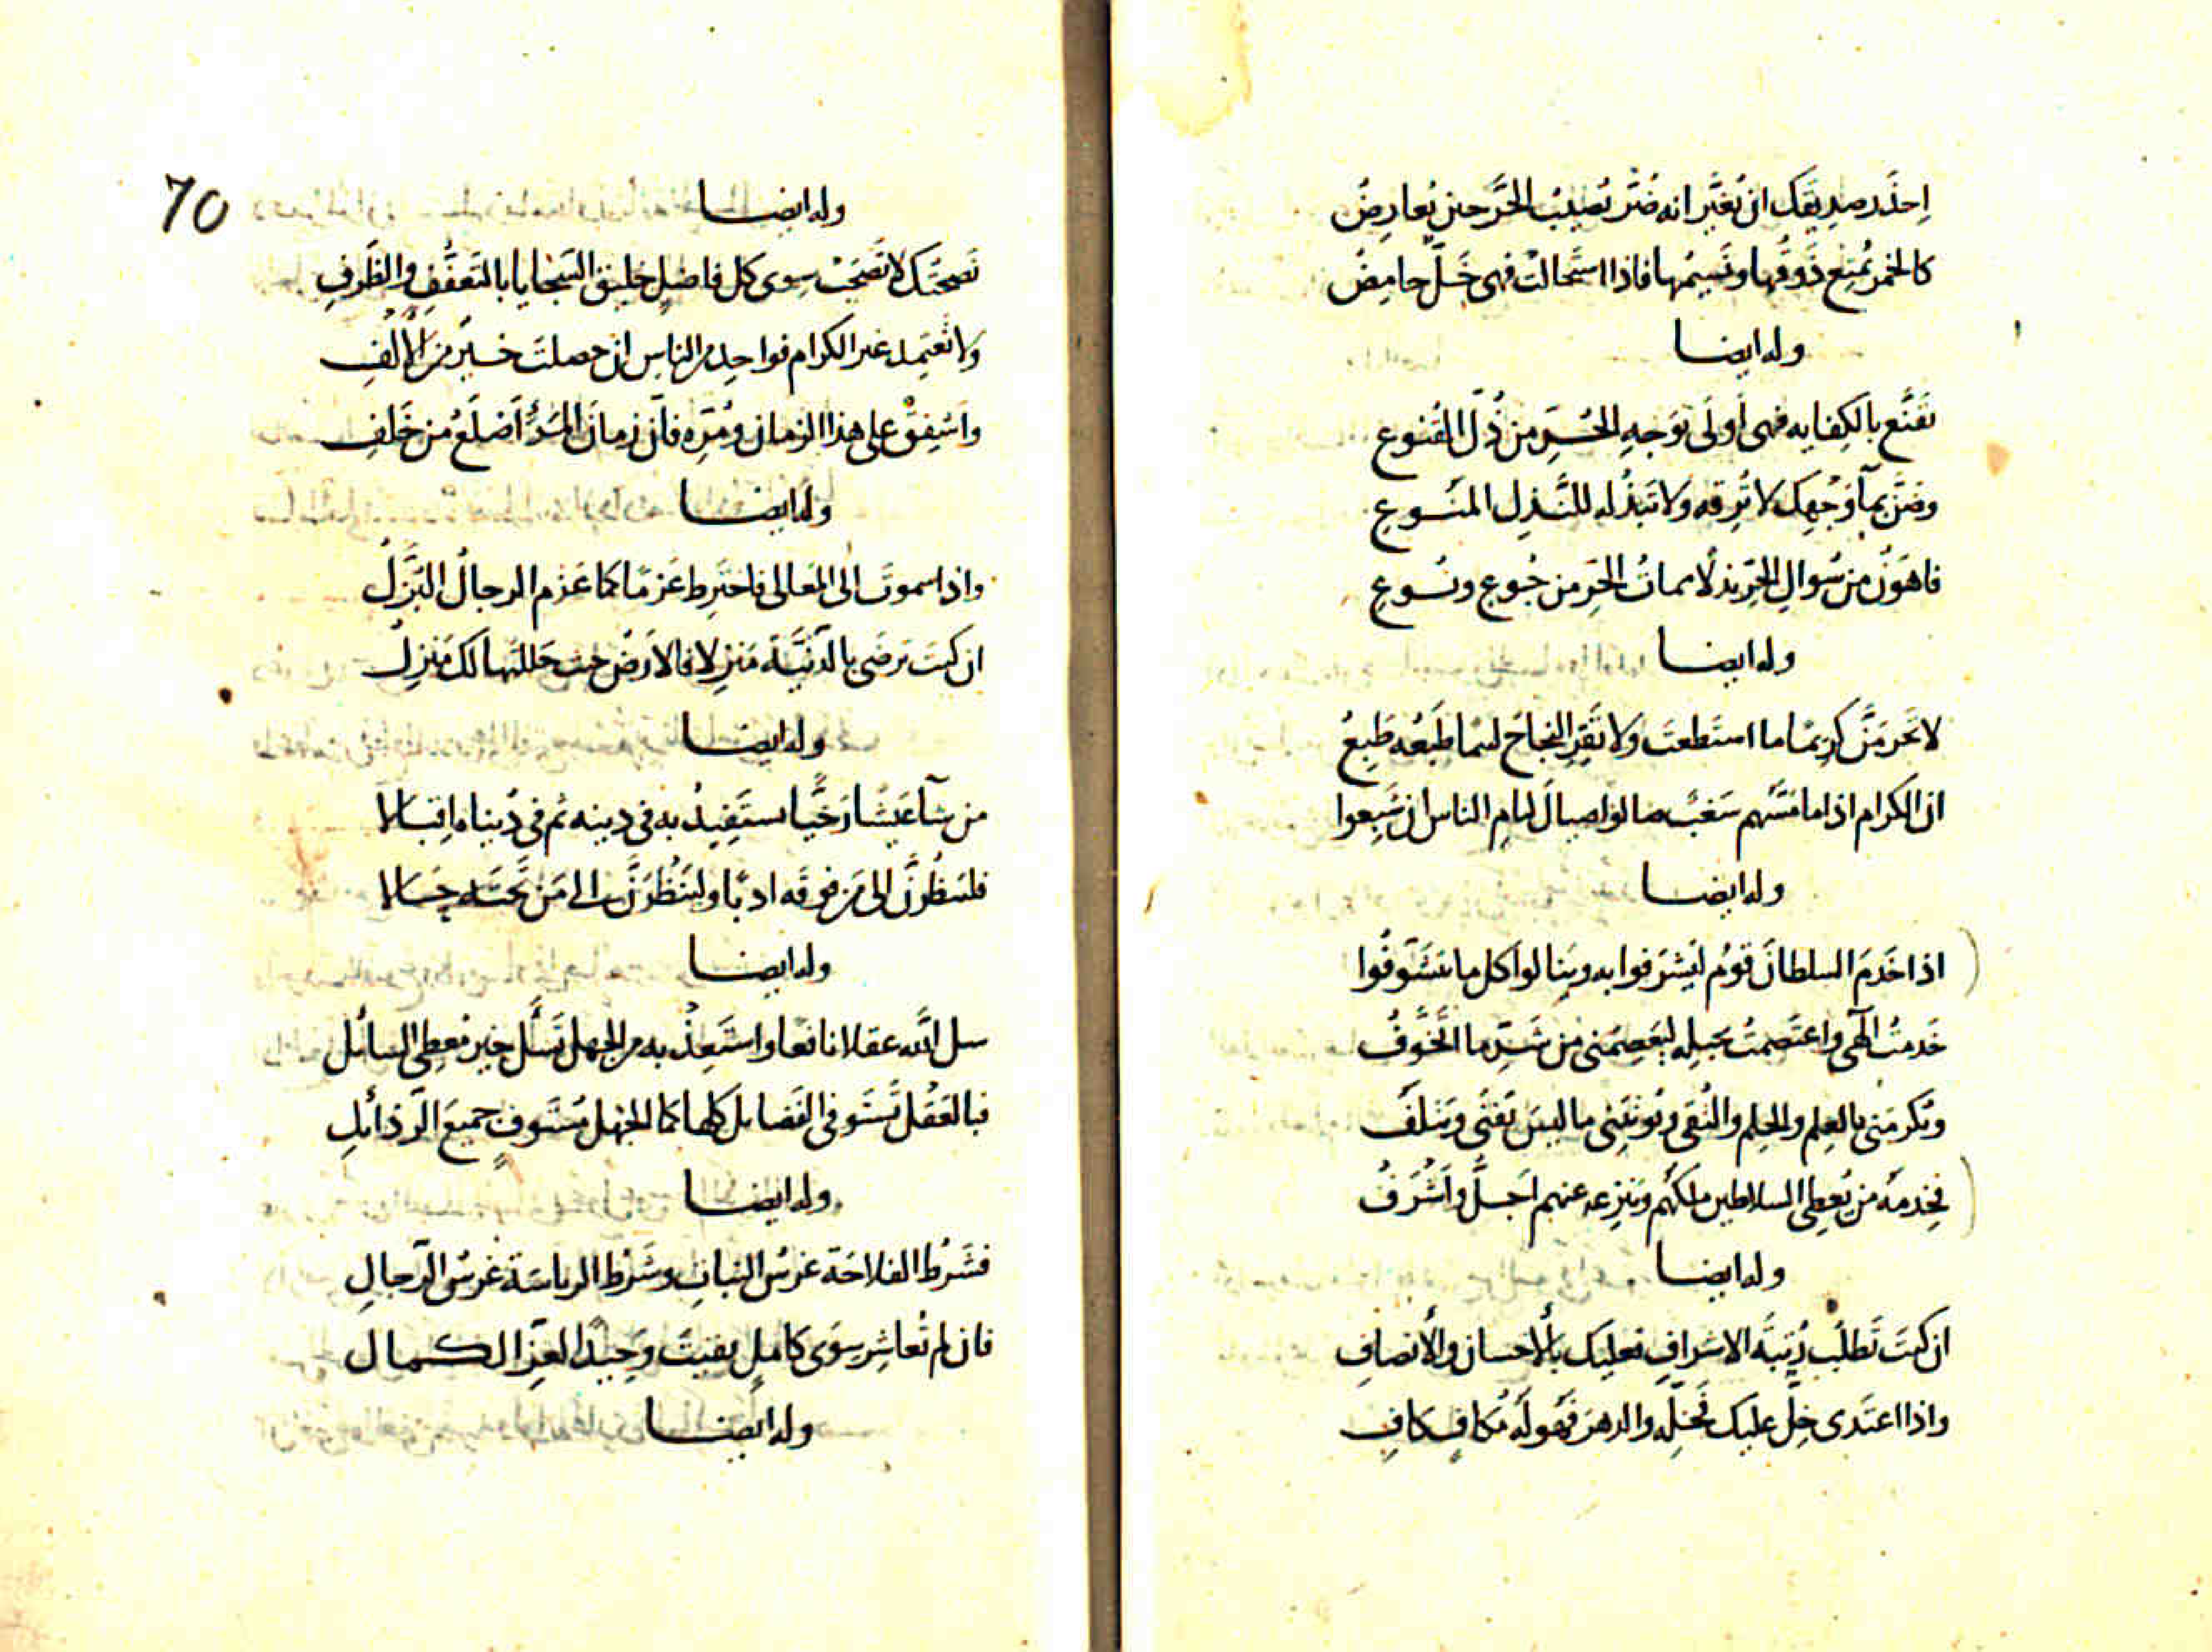 اِحذَر صديقَك ان تغيَّر انه ضُرّ يُصيبُ الحُرَّ حين يُعارِضُ
كالخمر يُمتِع ذَوقُها ونَسيمُها فاذا استَحالَت فهى خَلٌّ حامِضُ
وله ايضا
تقَنَّع بالكِفايه فهى أولَى بوَجهِ الحُرِّ من ذُلّ القُنوعِ
وضنَّ بمآءِ وَجهِك لا تُرِقه ولا تَبذُله للنَّذِل المَنُوعِ
فاهوَنُ من سُوالِ الحُرِّ نذلًا مماتُ الحُرّ من جُوعٍ ونُوعِ
وله ايضا
لا تَحرِمَنَّ كريمًا ما استَطعتَ ولا تَقرِ النجاحَ لئيمًا طَبعُه طَبِعُ
ان الكرام اذا ما مَسَّهم سَغَبٌ صالوا صيالَ ليامِ الناس ان شَبِعوا
وله ايضا
اذا خَدَمَ السلطانَ قومٌ ليَشرَفوا به ويَنالوا كل ما يتَشَوَّفُوا
خَدَمتُ الٓهى واعتَصمتُ بحَبلِه ليَعصِمَنى من شَرِّ ما اتَخَوَّفُ
ويُكرمَنى بالعِلم والحِلم والتُقى ويُوتيَنِى ما ليسَ يَفنَى ويَتلَفُ
فخِدمَةُ من يُعطِى السلاطين ملكَهُم ويَنزِعه عنهم اَجَلُّ واَشرَفُ
وله ايضا
ان كنتَ تَطلُب رُتبَةَ الاشرافِ فعليك بالأحسان والأنصافِ
واذا اعتَدى خِلٌّ عليك فخَلِّه والدهرَ فَهو له مُكافٍ كافِ
70
وله ايضا
نصَحتُك لا تَصحَب سِوى كل فاضلٍ خليق السَجايا بالتَعفُّفِ والظَرفِ
ولا تَعتَمِد غير الكرام فواحِد من الناسِ ان حصلتَ خيرٌ من الألفِ
واَشفِقْ على هذا الزمان ومُرِّه فانّ زمانَ المَرءِ أضلَعُ من خَلفِ
وله ايضا
واذا سموتَ الى المَعالى فاختَرِط عَزمًا كما عَزَم الرجالُ البُزَّلُ
ان كنتَ ترضَى بالدَنيَّة مَنزِلا فالارضُ حيث حَللتَها لك مَنزِلُ
وله ايضا
من شآءَ عَيشًا رَخيًّا يستَفيدُ به فى دينه ثم فى دُنياه اِقبَالا
فلينظُرنَّ الى من فوقَه ادبًا ولينظُرَنَّ الى مَن تَحتَه حَالا
وله ايضا
سل اللّه عقلا نافعا واستَعِذْ به من الجهل تَسأل خير مُعطِى السائل
فبالعَقل تَستَوفى الفَضايل كلها كما الجهل مُستَوفٍ جميعَ الرَذائلِ
وله ايضا
فشَرطُ الفلاحَة غرسُ النباتِ وشَرطُ الرياسَة غرسُ الرّجالِ
فان لم تُعاشِر سِوَى كاملٍ بقيتَ وحيدًا لعِزّ الكمال
وله ايضا